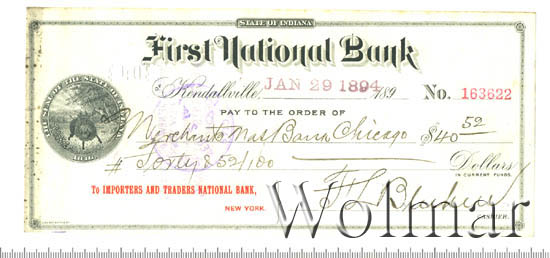 STATE OF INDIANA
First National Bank
Kendallville, JAN 29 1894 189 No. 163622
PAY TO THE ORDER OF
Merchants Nat Bank Chicago $40 52
# Forty & 52/100 Dollars
IN CURRENT FUNDS.
To IMPORTERS AND TRADERS NATIONAL BANK,
NEW YORK.
CASHIER.
Wolmar